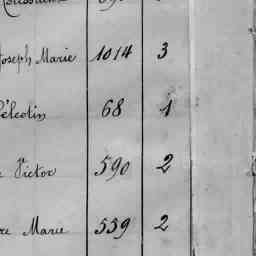 Joseph Marie 1014 3
Célestin 68 1
Victor 590 2
Marie 539 2